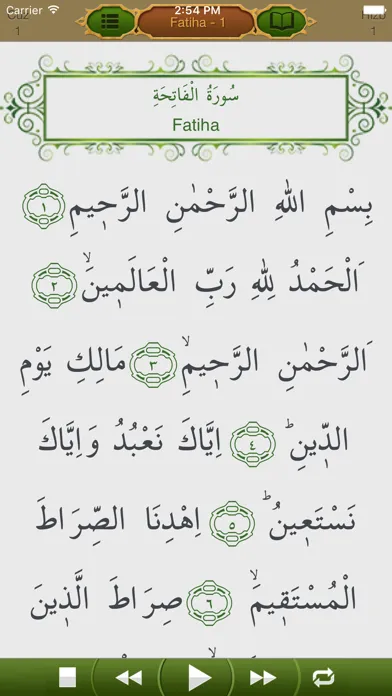 Carrier 2:54 PM
Cüz Fatiha - 1 Hizb
1 1
سُورَةُ الْفَاتِحَةِ
Fatiha
بِسْمِ اللهِ الرَّحْمٰنِ الرَّح۪يمِ ١
اَلْحَمْدُ لِلّٰهِ رَبِّ الْعَالَم۪ينَۙ ٢
اَلرَّحْمٰنِ الرَّح۪يمِۙ ٣ مَالِكِ يَوْمِ
الدّ۪ينِۜ ٤ اِيَّاكَ نَعْبُدُ وَاِيَّاكَ
نَسْتَع۪ينُۜ ٥ اِهْدِنَا الصِّرَاطَ
الْمُسْتَق۪يمَۙ ٦ صِرَاطَ الَّذ۪ينَ